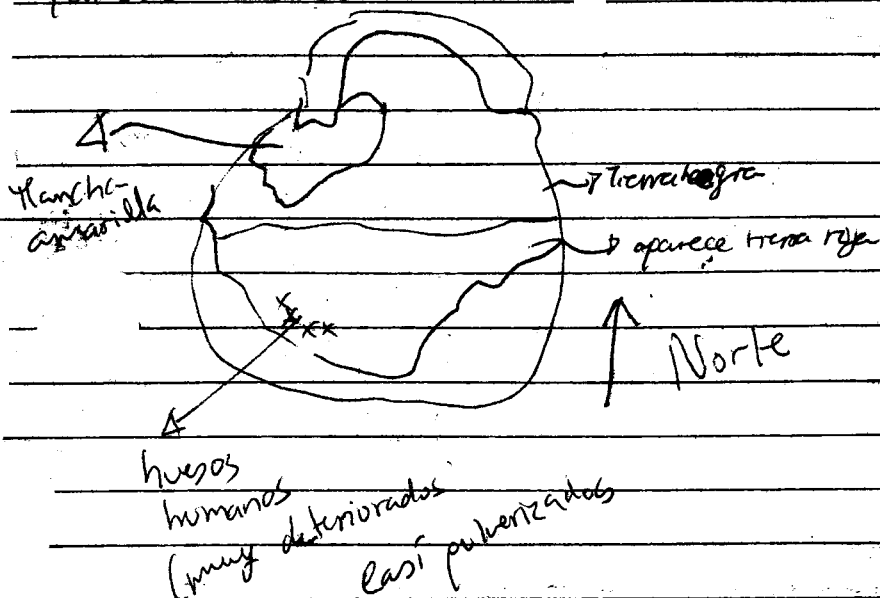 Mancha
amarilla
Tierra negra
aparece tierra roja
Norte
huesos
humanos
(muy deteriorados
casi pulverizados